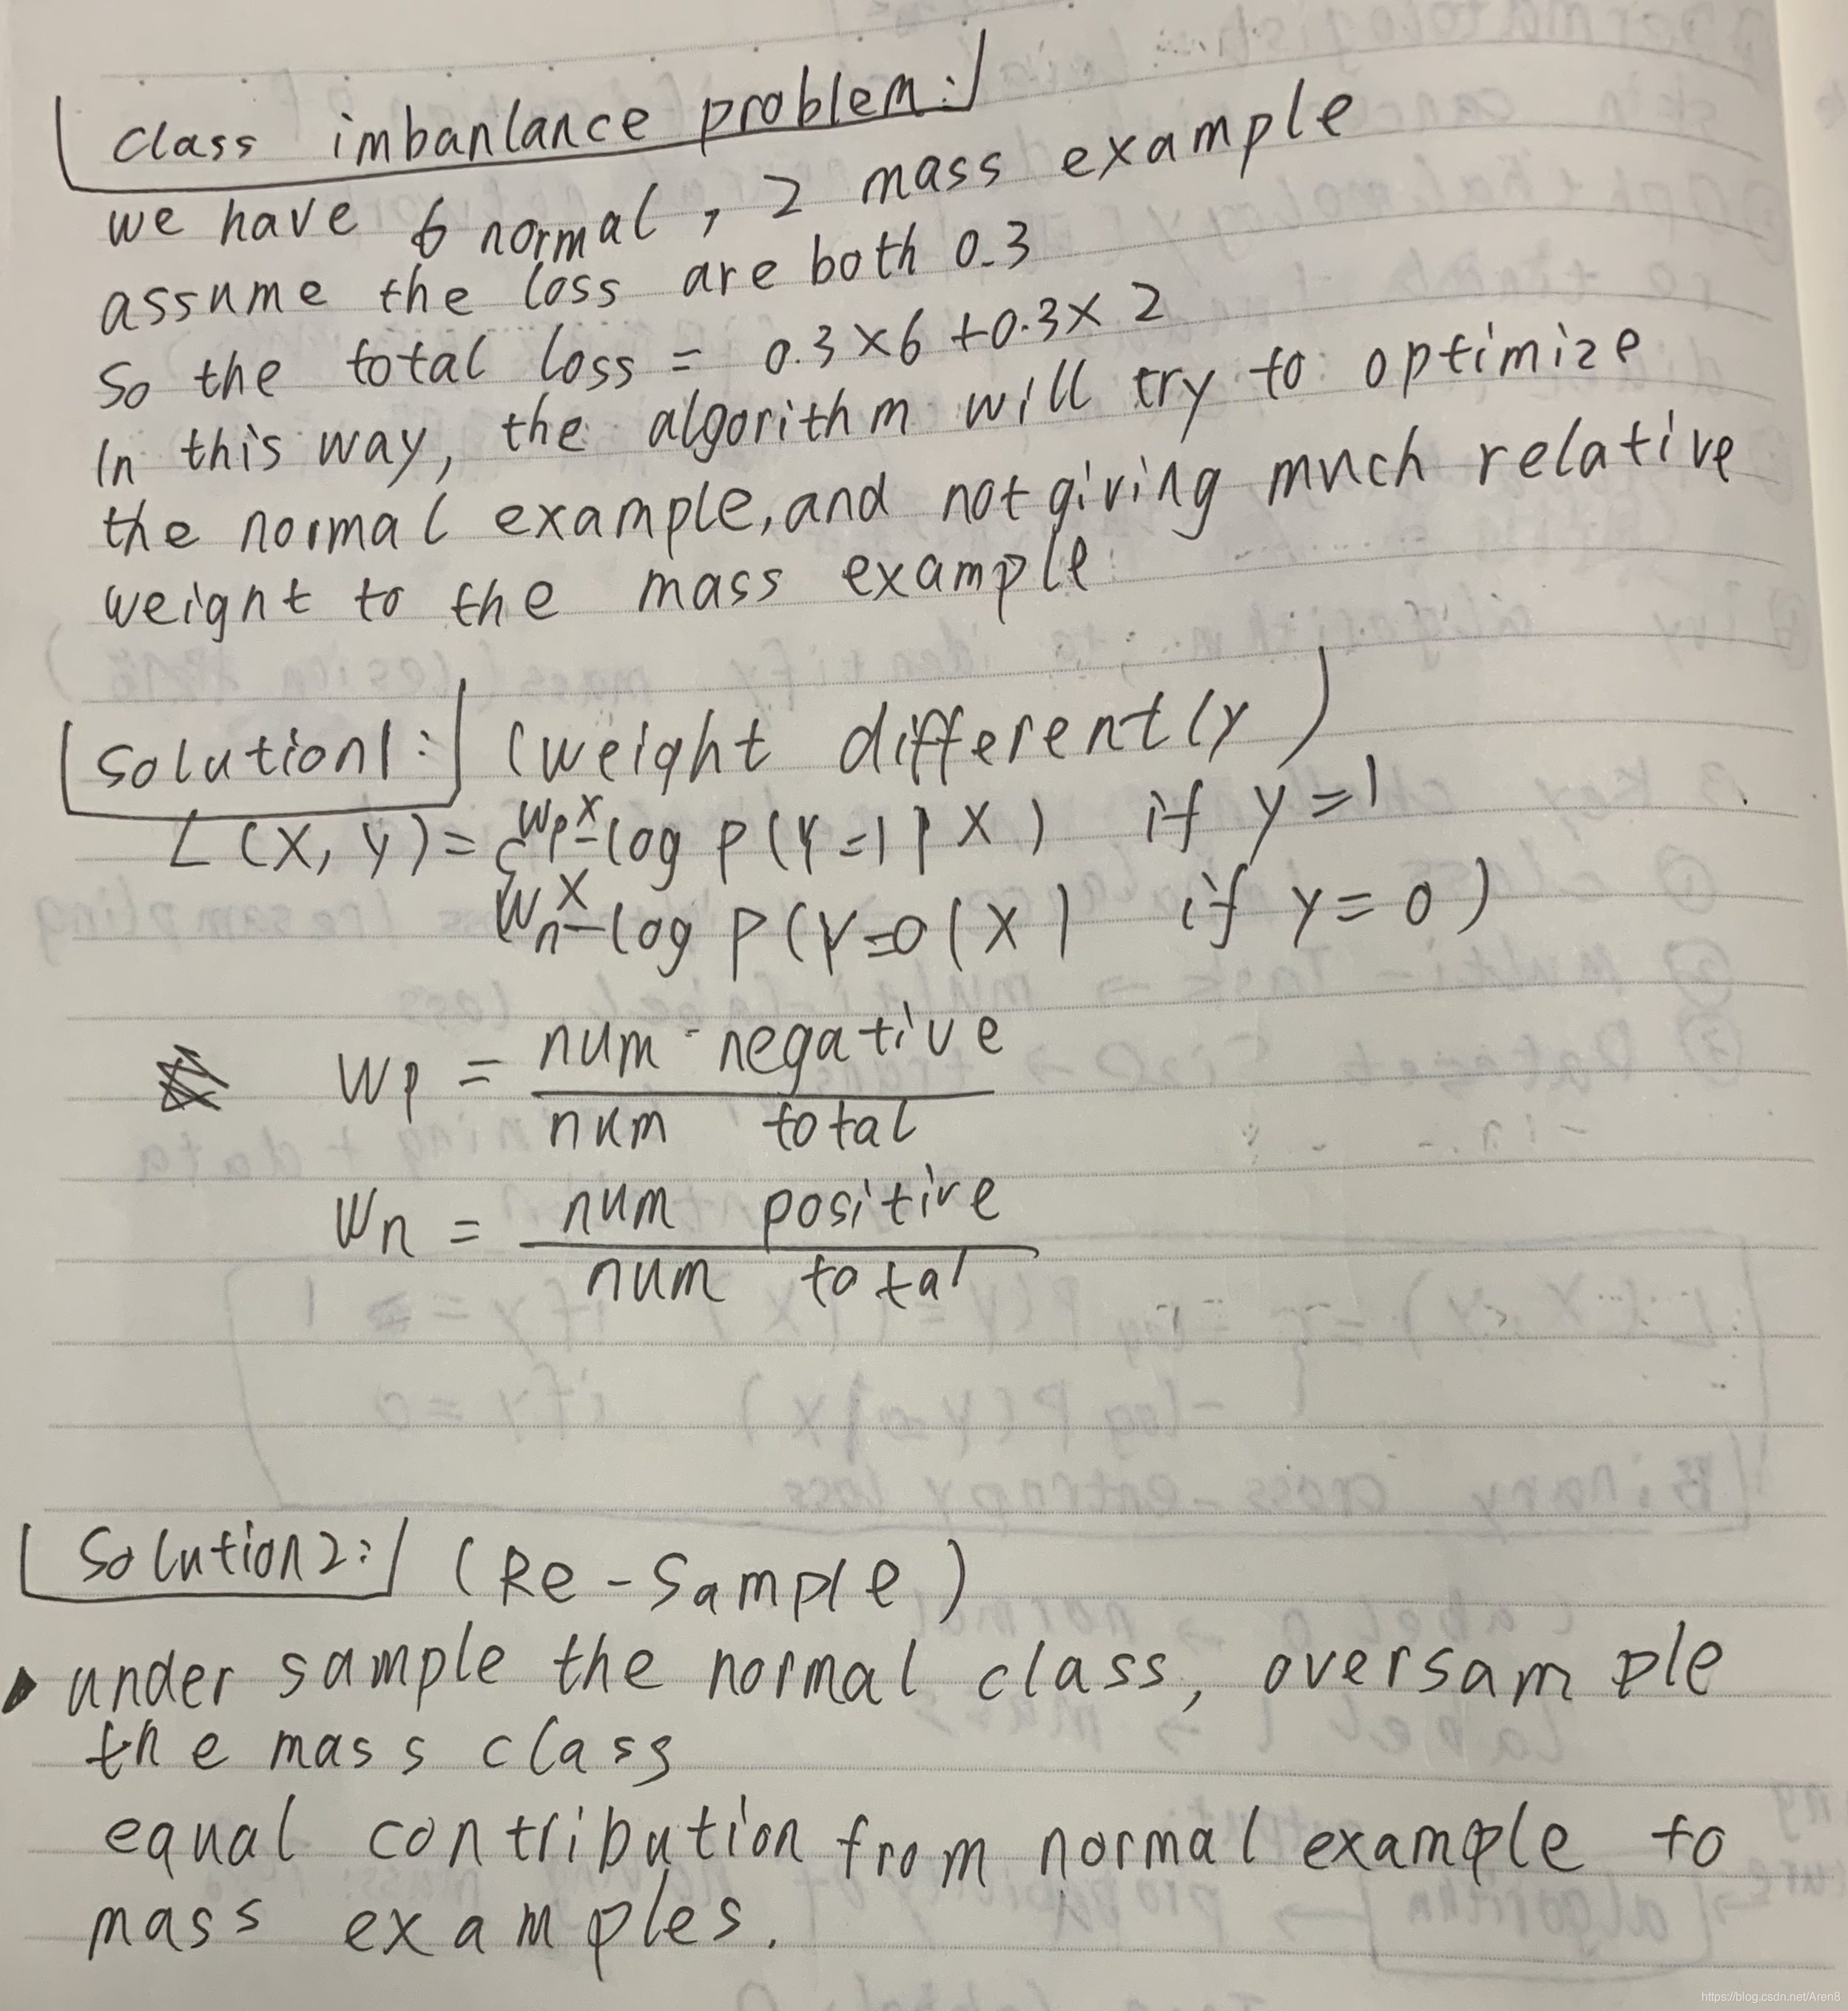 class imbanlance problem:
we have 6 normal, 2 mass example
assume the loss are both 0.3
so the total loss = 0.3×6+0.3×2
In this way, the algorithm will try to optimize
the normal example, and not giving much relative
weignt to the mass example
Solution1: (weight differently)
L(X, Y) = { Wp × -log P(Y=1|X) if y=1
Wn × -log P(Y=0|X) if y=0)
Wp = num negative / num total
Wn = num positive / num total
Solution2: (Re-Sample)
under sample the normal class, oversample
the mass class
equal contribution from normal example to
mass examples.
https://blog.csdn.net/Aren8